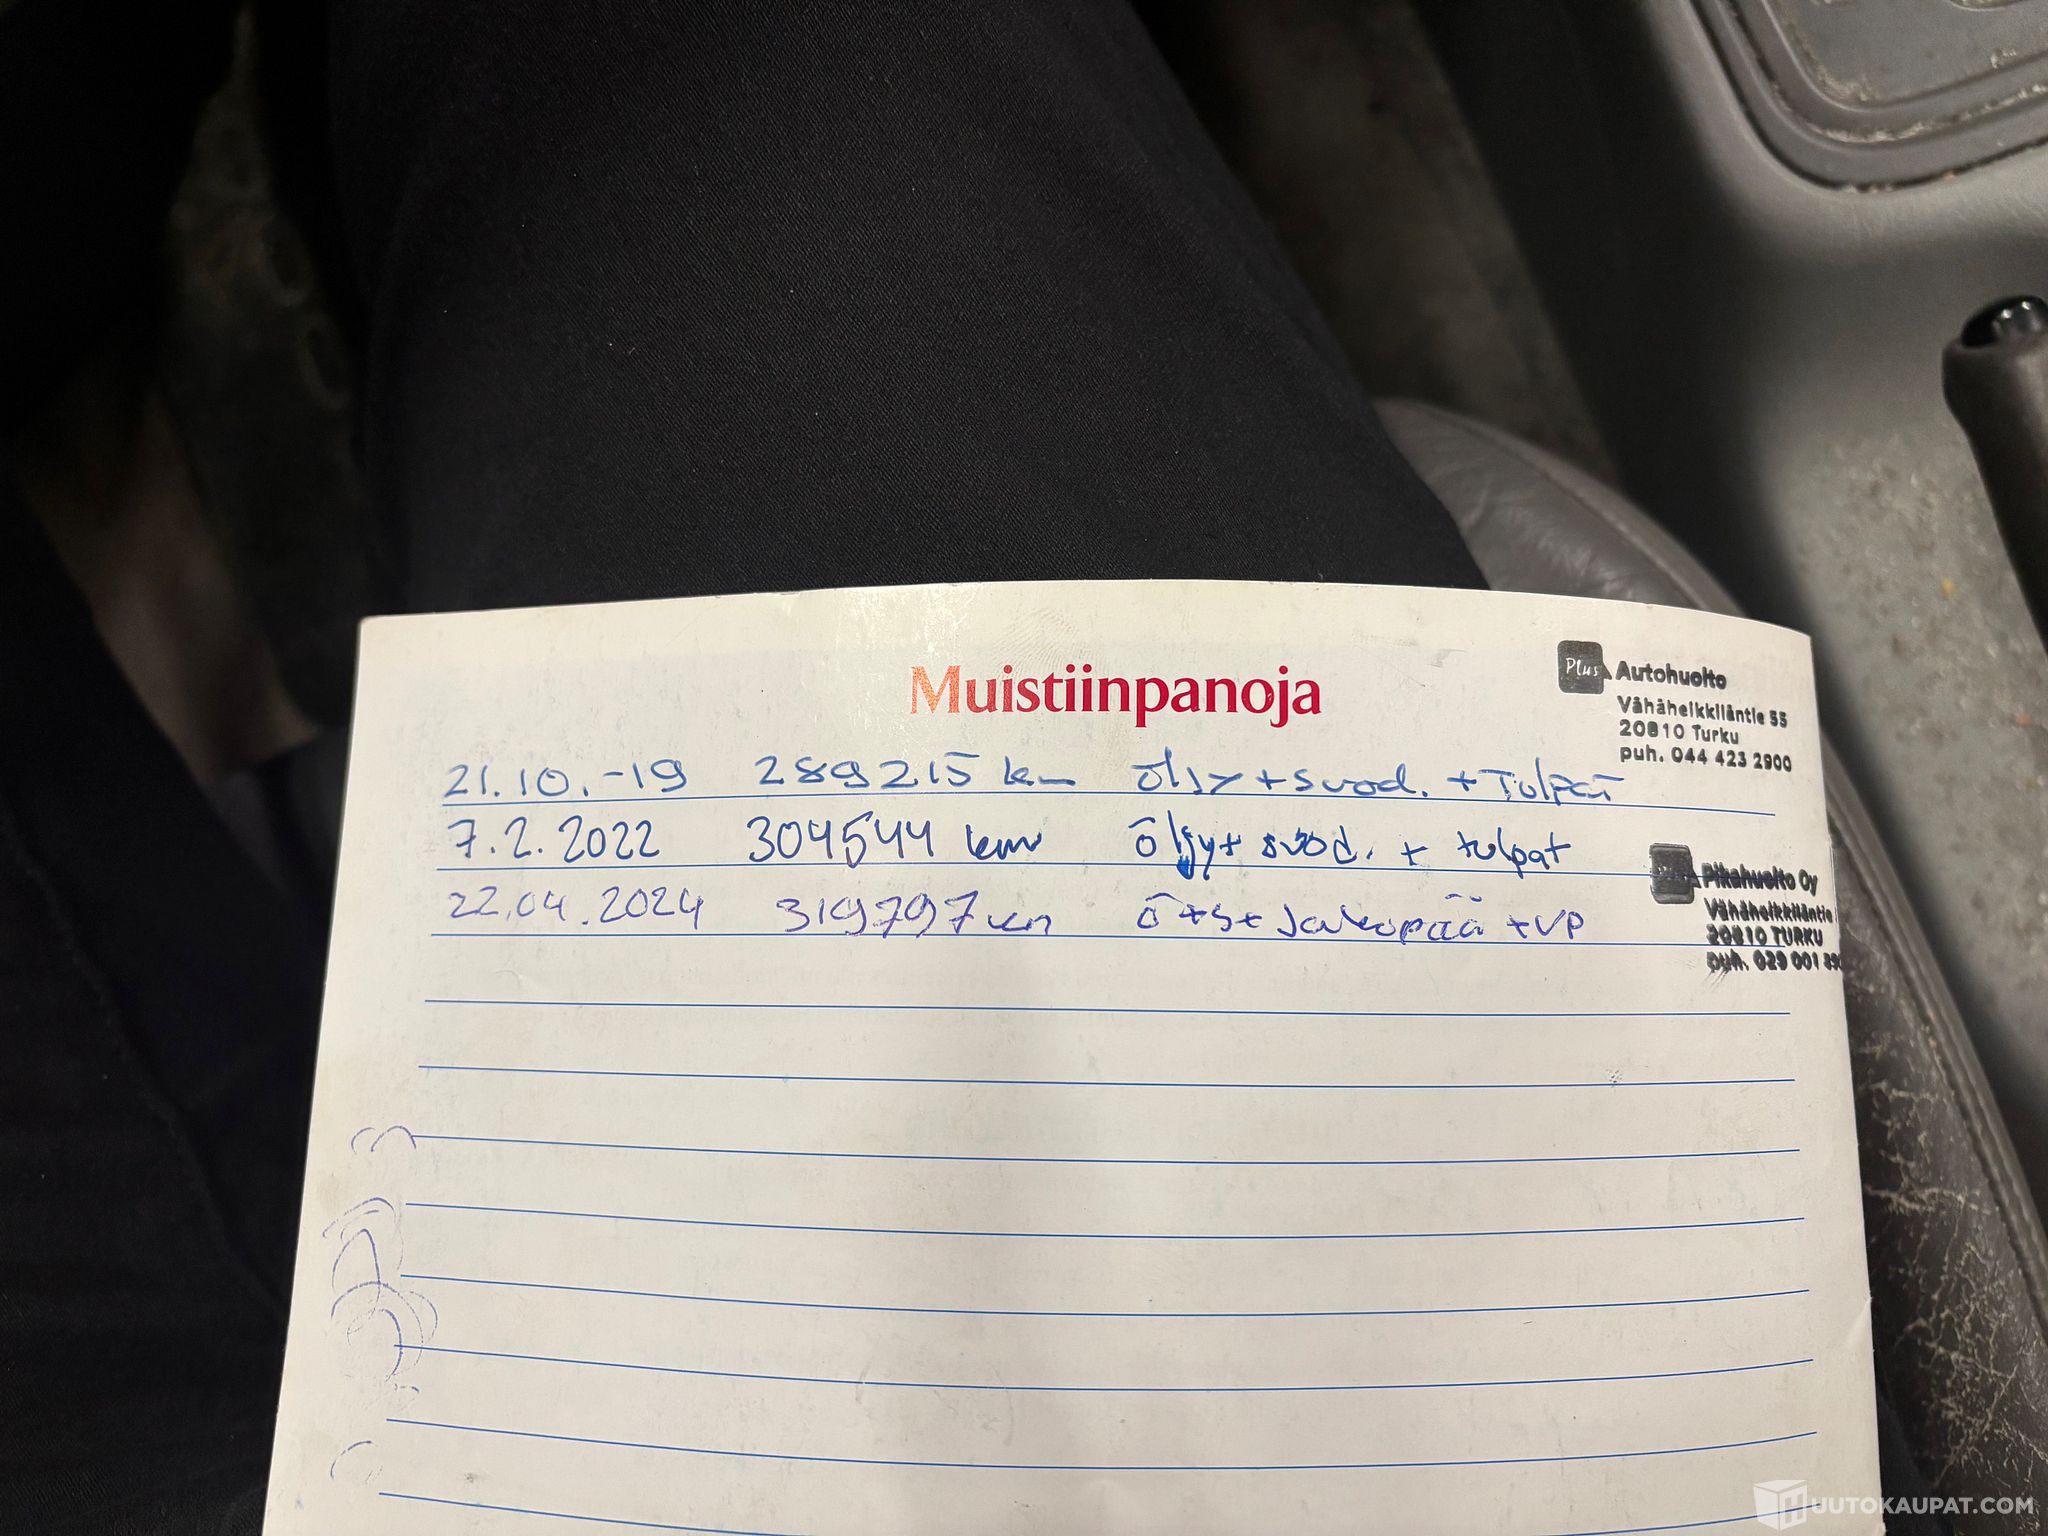 Muistiinpanoja
Plus Autohuolto
Vähäheikkiläntie 55
20810 Turku
puh. 044 423 2900
21.10.-19 289215 km öljy + suod. + Tulpat
7.2.2022 304544 km öljy + suod. + tulpat
Pikahuolto Oy
Vähäheikkiläntie
20810 TURKU
puh. 029 001
22.04.2024 319797 km Ö+S+ Jakopää + VP
HUUTOKAUPAT.COM